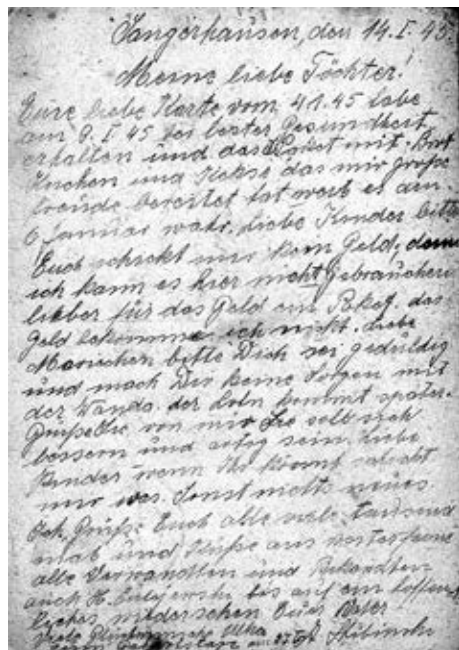 Sangerhausen, den 14. I. 45.
Meine liebe Töchter!
Eure liebe Karte vom 4.1.45 habe
am 9. I 45 bei bester Gesundheit
erhalten und das Paket mit Brot
Kuchen und Kekse das mir große
Freude bereitet hat weil es am
6 Januar wahr. liebe Kinder bitte
Euch schickt mir kein Geld, denn
ich kann es hier nicht gebrauchen
lieber für das Geld ein Paket, das
Geld bekomme ich nicht. Liebe
Marischen bitte Dich sei geduldig
und mach Dir keine Sorgen mit
der Wanda. der Lohn kommt später.
Grüße von mir soll sich
bessern und artig sein, liebe
Kinder wenn Ihr könnt schickt
mir was. Sonst nichts neues
Ich Grüße Euch alle viele tausend
mal und Küße aus
alle Verwandten und Bekannten
auch H. bis auf ein hoffent
liches wiedersehen Euer Vater
viele Glückwünsche
zum am